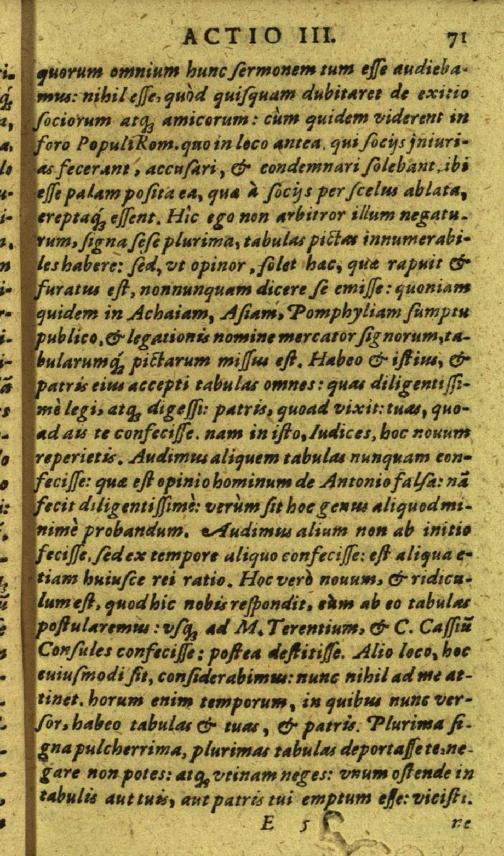 ACTIO III. 71
quorum omnium hunc ſermonem tum eſſe audieba-
mus: nihil eſſe, quòd quiſquam dubitaret de exitio
ſociorum atq́; amicorum: cùm quidem viderent in
foro Populi Rom. quo in loco antea, qui ſocijs iniuri-
as fecerant, accuſari, & condemnari ſolebant, ibi
eſſe palam poſita ea, quæ à ſocijs per ſcelus ablata,
ereptaq́; eſſent. Hic ego non arbitror illum negatu-
rum, ſigna ſeſe plurima, tabulas pictas innumerabi-
les habere: ſed, vt opinor, ſolet hæc, quæ rapuit &
furatus eſt, nonnunquam dicere ſe emiſſe: quoniam
quidem in Achaiam, Aſiam, Pomphyliam ſumptu
publico, & legationis nomine mercator ſignorum, ta-
bularumq́; pictarum miſſus eſt. Habeo & iſtius, &
patris eius accepti tabulas omnes: quas diligentiſſi-
mè legi, atq; digeſſi: patris, quoad vixit: tuas, quo-
ad ais te confeciſſe. nam in iſto, Iudices, hoc nouum
reperietis. Audimus aliquem tabulas nunquam con-
feciſſe: quæ eſt opinio hominum de Antonio falſa: nã
fecit diligentiſſimè: verùm ſit hoc genus aliquod mi-
nimè probandum. Audimus alium non ab initio
feciſſe, ſed ex tempore aliquo confeciſſe: eſt aliqua e-
tiam huiuſce rei ratio. Hoc verò nouum, & ridicu-
lum eſt, quod hic nobis reſpondit, cùm ab eo tabulas
poſtularemus: vſq; ad M. Terentium, & C. Caſſiũ
Conſules confeciſſe: poſtea deſtitiſſe. Alio loco, hoc
cuiuſmodi ſit, conſiderabimus: nunc nihil ad me at-
tinet. horum enim temporum, in quibus nunc ver-
ſor, habeo tabulas & tuas, & patris. Plurima ſi-
gna pulcherrima, plurimas tabulas deportaſſe te, ne-
gare non potes: atq; vtinam neges: vnum oſtende in
tabulis aut tuis, aut patris tui emptum eſſe: viciſti.
E 5 ne